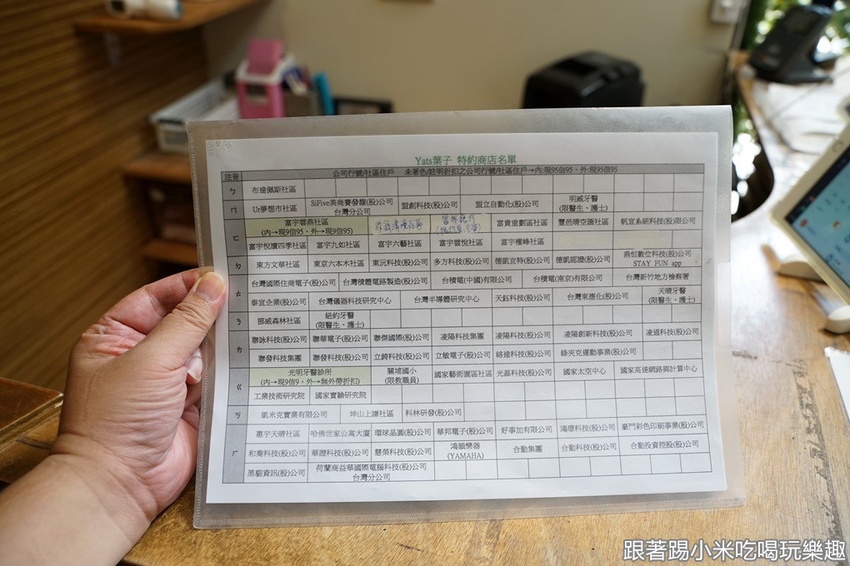 Yats葉子 特約商店名單
註音 公司行號/社區住戶 未著色/註明折扣之公司行號/社區住戶→內:現95信95、外:現95信95
ㄅ 布達佩斯社區
ㄇ Ur夢想市社區 SiFive美商賽發馥(股)公司台灣分公司 盟創科技(股)公司 盟立自動化(股)公司 明威牙醫(限醫生、護士)
ㄈ 富宇雲燕社區(內→現9信95、外→現9信95) 富貴重劃區社區 豐邑晴空匯社區 帆宣系統科技(股)公司
富宇悅讀四季社區 富宇九如社區 富宇六藝社區 富宇雲悅社區 富宇權峰社區
ㄉ 東方文華社區 東京六本木社區 東沅科技(股)公司 多方科技(股)公司 德凱宜特(股)公司 德凱認證(股)公司 鼎恒數位科技(股)公司 STAY FUN app
ㄊ 台灣國際住商電子(股)公司 台灣積體電路製造(股)公司 台積電(中國)有限公司 台積電(南京)有限公司 台灣新竹地方檢察署
泰宜企業(股)公司 台灣儀器科技研究中心 台灣半導體研究中心 天鈺科技(股)公司 台灣東應化(股)公司 天晴牙醫(限醫生、護士)
ㄋ 挪威森林社區 紐約牙醫(限醫生、護士)
ㄌ 聯詠科技(股)公司 聯華電子(股)公司 聯傑國際(股)公司 凌陽科技集團 凌陽科技(股)公司 凌陽創新科技(股)公司 凌通科技(股)公司
聯發科技集團 聯發科技(股)公司 立錡科技(股)公司 立敏電子(股)公司 絡達科技(股)公司 綠夾克運動事業(股)公司
ㄍ 光明牙醫診所(內→現9信9、外→無外帶折扣) 關埔國小(限教職員) 國家藝術園區社區 光磊科技(股)公司 國家太空中心 國家高速網路與計算中心
工業技術研究院 國家實驗研究院
ㄎ 凱米克實業有限公司 坤山上謙社區 科林研發(股)公司
ㄏ 惠宇天晴社區 哈佛世家公寓大廈 環球晶圓(股)公司 華邦電子(股)公司 好事加有限公司 鴻璟科技(股)公司 豪門彩色印刷事業(股)公司
和喬科技(股)公司 華證科技(股)公司 慧榮科技(股)公司 鴻韻樂器(YAMAHA) 合勤集團 合勤科技(股)公司 合勤投資控股(股)公司
黑貓資訊(股)公司 荷蘭商益華國際電腦科技(股)公司台灣分公司
跟著踢小米吃喝玩樂趣